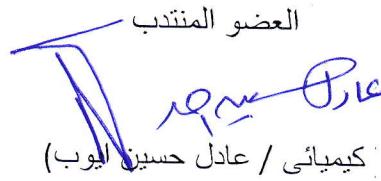 العضو المنتدب
عادل حسين
كيميائى / عادل حسين ايوب)